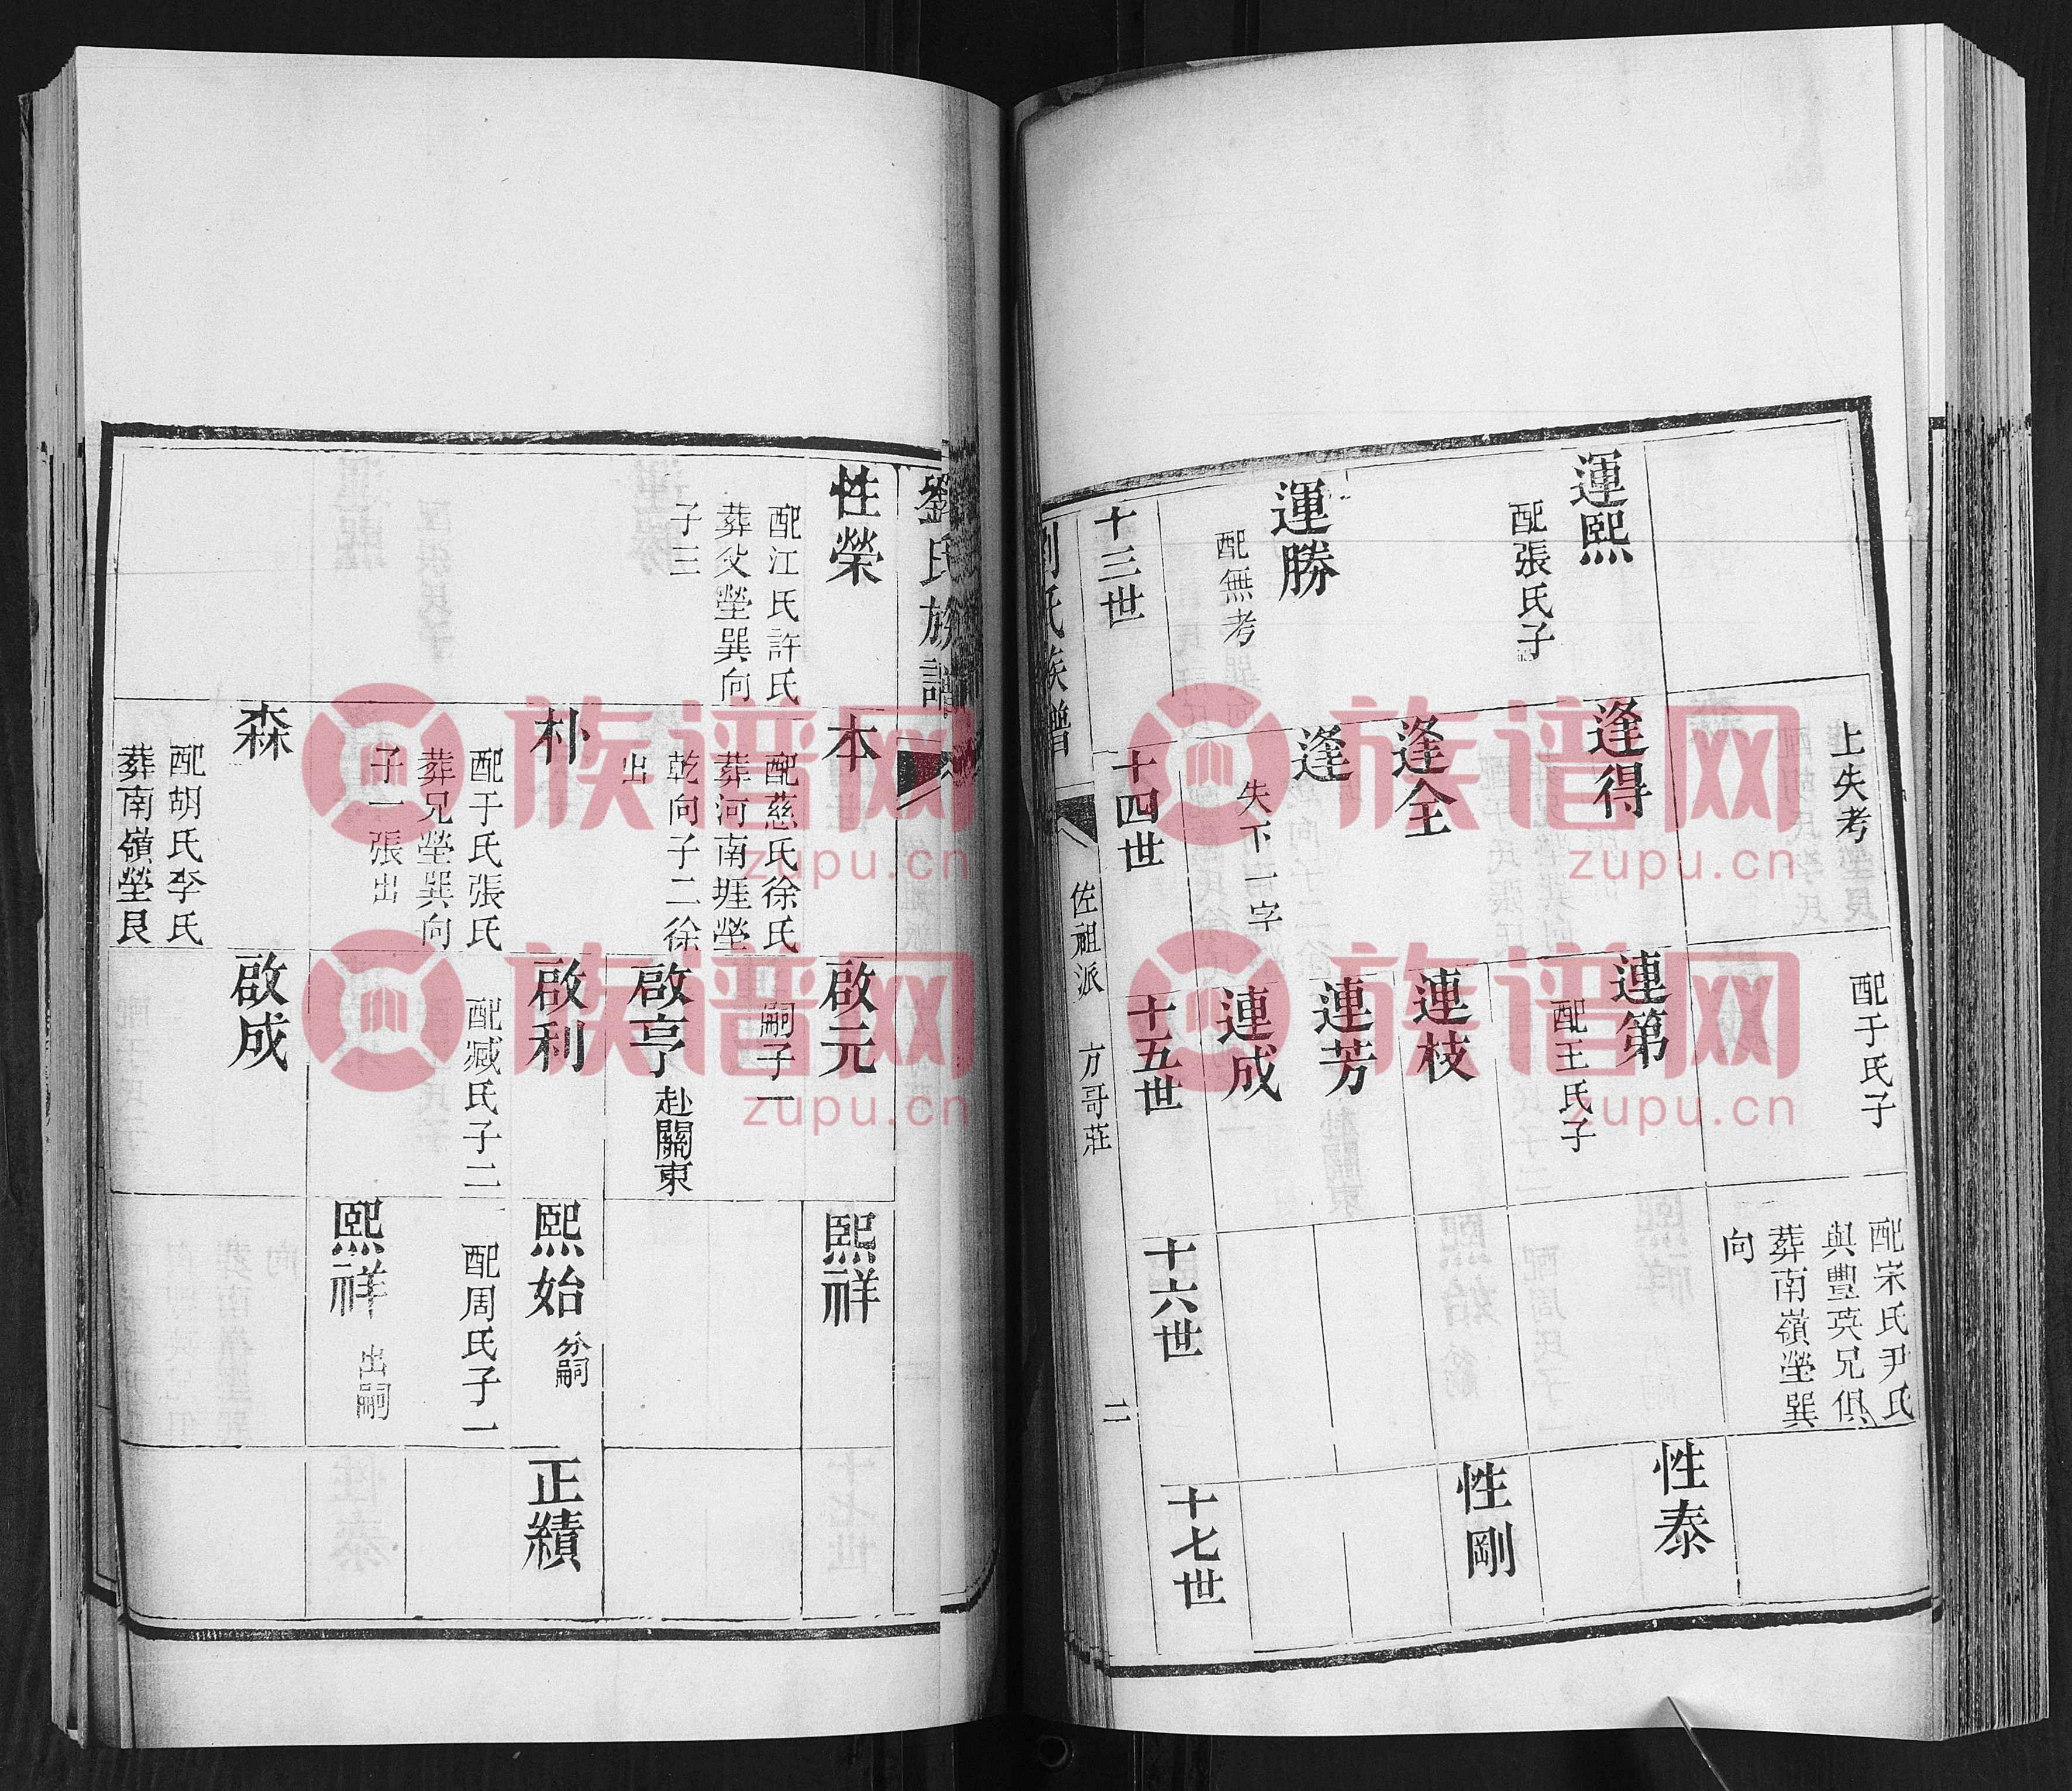 上失考
配于氏子
配宋氏尹氏
與豐英兄俱
葬南嶺塋巽
向
運熙
配張氏子
逢得
連第
配王氏子
性泰
逢全
連枝
性剛
運勝
配無考
逢
失下一字
連芳
連成
十三世
十四世
十五世
十六世
十七世
刘氏族譜
佐祖派
方哥莊
二
劉氏族譜
性榮
配江氏許氏
葬父塋巽向
子三
本
配慈氏徐氏
葬河南堐塋
乾向子二徐
出
啟元
嗣子一
熙祥
啟亨
赴關東
朴
配于氏張氏
葬兄塋巽向
子一張出
啟利
配臧氏子二
熙始
兼嗣
配周氏子一
正績
熙祥
出嗣
森
配胡氏李氏
葬南嶺塋艮
啟成
族谱网
zupu.cn
族谱网
zupu.cn
族谱网
zupu.cn
族谱网
zupu.cn